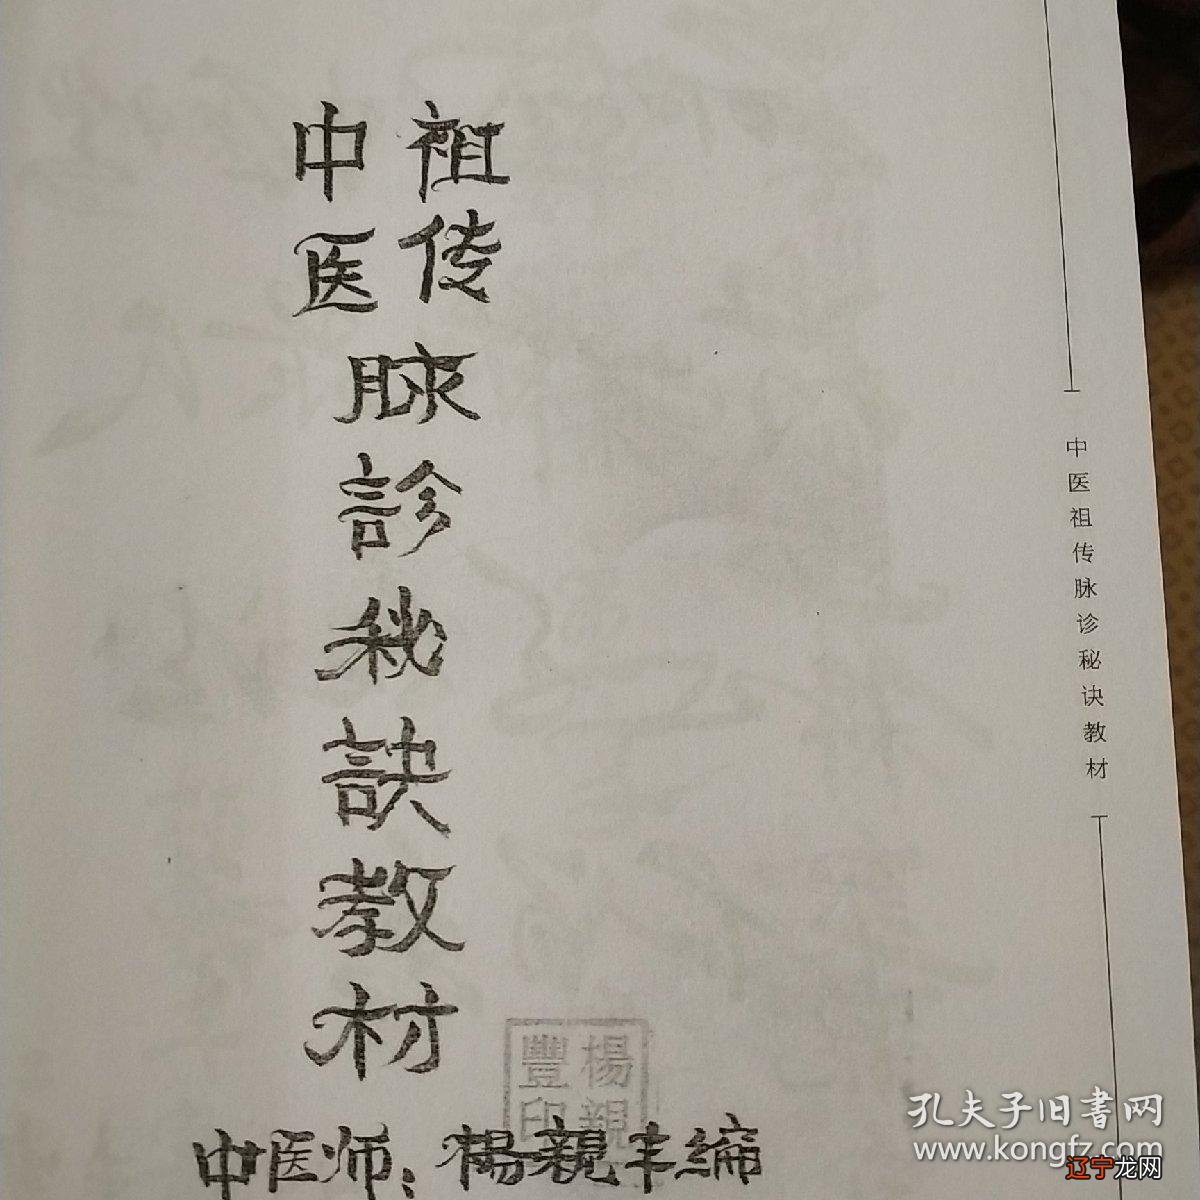 祖传
中医
脉診秘訣教材
中医师：楊親丰編
楊親
豐印
中医祖传脉诊秘诀教材
孔夫子旧书网
www.kongfz.com
辽宁龙网